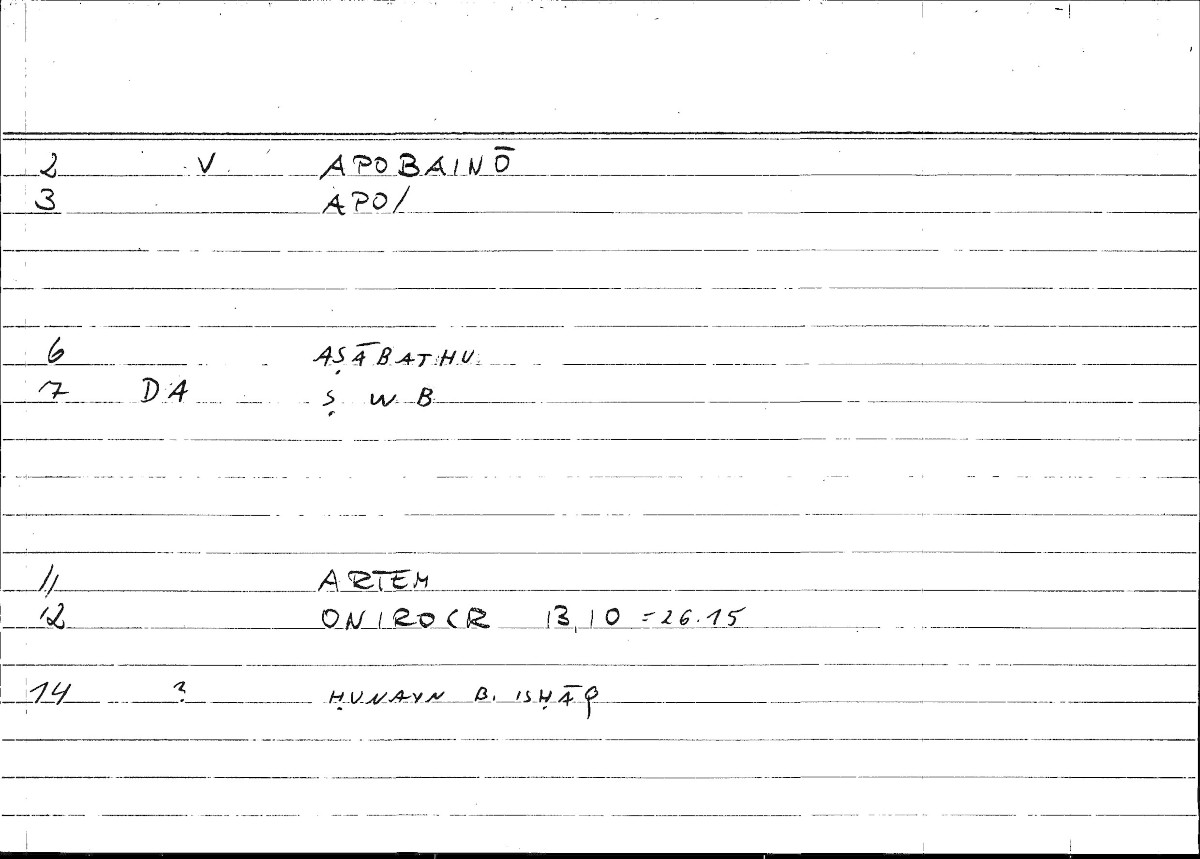 2 V. APOBAINŌ
3 APO/
6 AṢĀBATHU
7 DA Ṣ W B
11 ARTEM
12 ONIROCR 13,10 = 26.15
14 ? ḤUNAYN B. ISḤĀQ